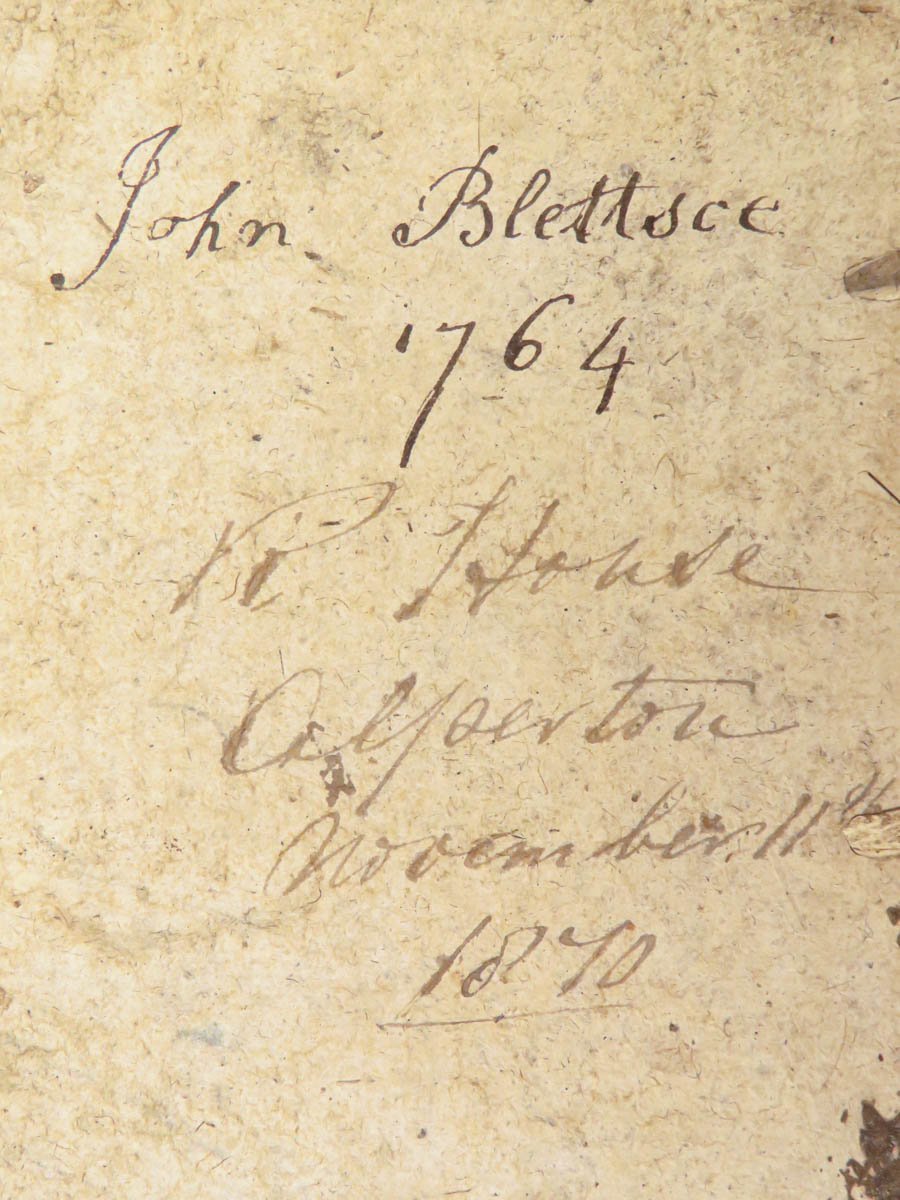 John Blettsce
1764
R House
Alperton
November 11th
1870